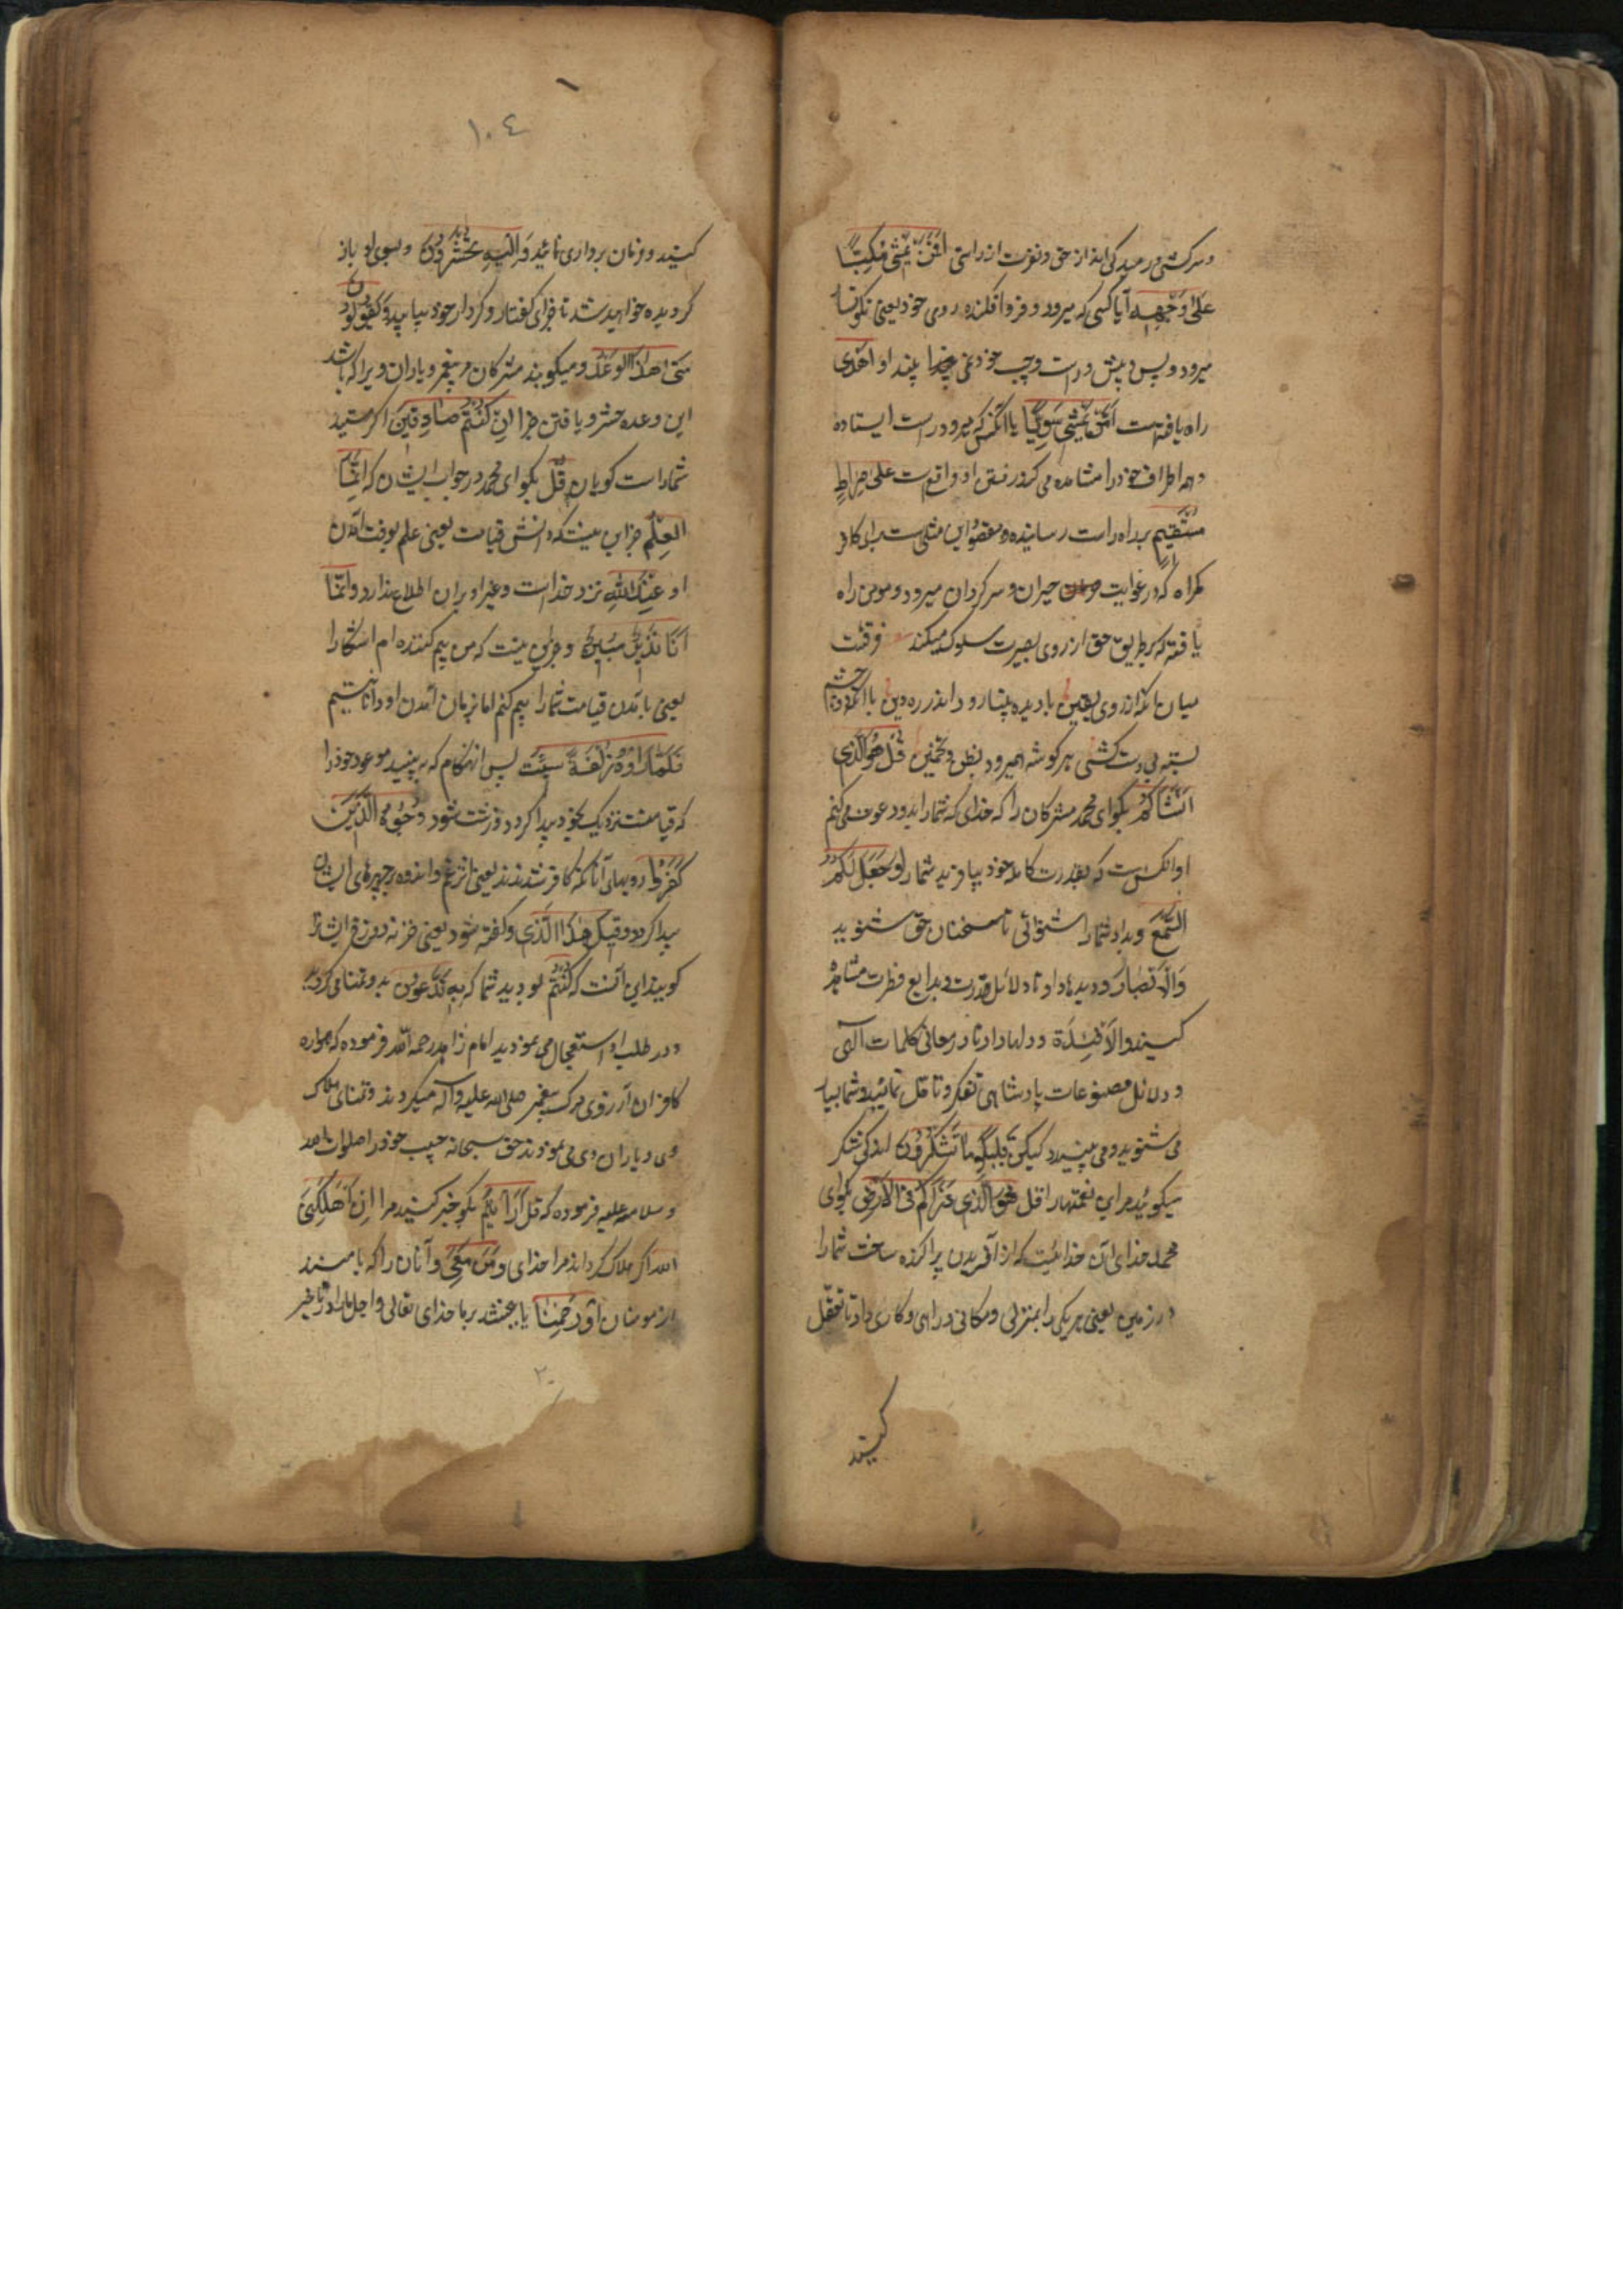 و سرکشی و رمیدگی اند از حق و نفرت از راستی اَفَمَنْ یَمْشی مُکِبًّا
عَلی وَجْهِهِ آیا کسی که میرود و فرو افکنده روی خود یعنی نکونسار
میرود و پس و پیش و راست و چپ خود نمی بیند او اَهْدی
راه یافته است اَمَّنْ یَمْشی سَوِیًّا یا آنکس که میرود راست ایستاده
و همه اطراف خود را مشاهده می کند و رفتن او واقع است عَلی صِراطٍ
مُسْتَقیمٍ براه راست رساننده و مقصود این مثلی ست برای کافر
گمراه که در غوایت حیران و سرگردان میرود و مومن راه
یافته که بر طریق حق از روی بصیرت سلوک میکند فرقست
میان آنکه از روی یقین با دیده بینا رود اندر ره دین با آنکه دو چشم
بسته بی دست کشی هر گوشه همیرود بظن و تخمین قُلْ هُوَ الَّذی
اَنْشَاَکُمْ بگو ای محمد مشرکان را که خدای که شما را بدو دعوت می کنم
او آنکس است که بقدرت کامله خود بیافرید شما را وَجَعَلَ لَکُمُ
السَّمْعَ و بداد شما را شنوائی تا سخنان حق شنوید
وَالْاَبْصارَ و دیدها داد تا دلائل قدرت و بدایع فطرت مشاهده
کنید وَالْاَفْئِدَةَ و دلها داد تا در معانی کلمات الهی
و دلائل مصنوعات پادشاهی تفکر و تامل نمائید و شما بسیار
می شنوید و می بینید لیکن قَلیلًا ما تَشْکُرُونَ اندکی شکر
میگوئید مر این نعمتها را قُلْ هُوَ الَّذی ذَرَاَکُمْ فِی الْاَرْضِ بگو ای
محمد خدای آن خدائیست که از آفریدن پراکنده ساخت شما را
در زمین یعنی هر یکی را بمنزلی و مکانی و راهی و کاری داد تا تعقل
کنید
١٠٤
کنید و فرمان برداری نمائید وَاِلَیْهِ تُحْشَرُونَ و بسوی او باز
گردیده خواهید شد تا جزای گفتار و کردار خود بیابید وَیَقُولُونَ
مَتی هذَا الْوَعْدُ و میگویند مشرکان مر پیغمبر و یاران ویرا که کی باشد
این وعده حشر و یافتن جزا اِنْ کُنْتُمْ صادِقینَ اگر هستید
شما راست گویان قُلْ بگو ای محمد در جواب ایشان که اِنَّمَا
الْعِلْمُ جز این نیست که دانش قیامت یعنی علم بوقت آمدن
او عِنْدَ اللّهِ نزد خداست و غیر او بران اطلاع ندارد وَاِنَّما
اَنَا نَذیرٌ مُبینٌ و جز این نیست که من بیم کننده ام آشکارا
یعنی بآمدن قیامت شما را بیم کنم اما زمان آمدن او دانا نیستم
فَلَمّا رَاَوْهُ زُلْفَةً سیئَتْ پس آن هنگام که به بینید موعود خود را
که قیامتست نزدیک بخود پیدا گردد و زشت شود وُجُوهُ الَّذینَ
کَفَرُوا رویهای آنانکه کافر شدند یعنی اثر غم و اندوه بر چهرهای ایشان
پیدا گردد وَقیلَ هذَا الَّذی و گفته شود یعنی خزنه دوزخ ایشانرا
گویند این آنست که کُنْتُمْ بودید شما که بِهِ تَدَّعُونَ بدو تمنا می کردید
و در طلب او استعجال می نمودید امام زاهد رحمه الله فرموده که همواره
کافران آرزوی مرگ پیغمبر صلی الله علیه وآله میکردند و تمنای هلاک
وی و یاران وی می نمودند حق سبحانه حبیب خود را صلوات الله
و سلامه علیه فرموده که قُلْ اَرَاَیْتُمْ بگو خبر کنید مرا اِنْ اَهْلَکَنِیَ
اللّهُ اگر هلاک گرداند مرا خدای وَمَنْ مَعِیَ و آنان را که با منند
از مومنان اَوْ رَحِمَنا یا ببخشد بر ما خدای تعالی و اجل ما را در تاخیر
٢٠